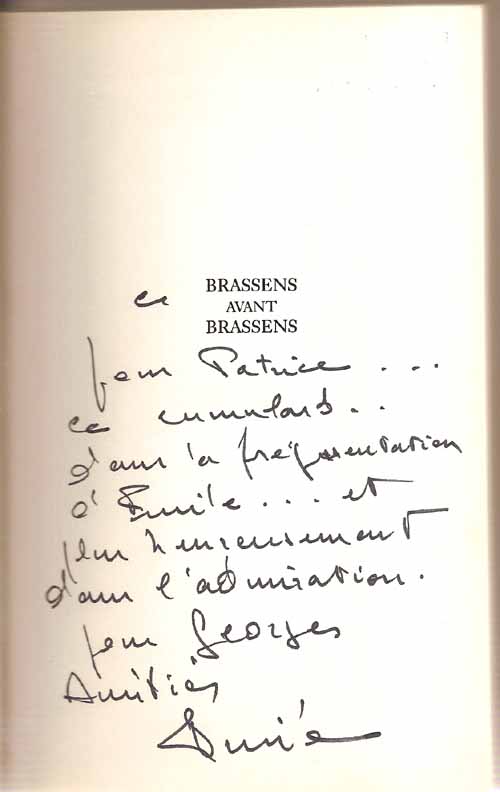 BRASSENS
AVANT
ce BRASSENS
pour Patrice ...
ce cumulard ..
dans la fréquentation
d'Emile ... et
plus heureusement
dans l'admiration.
pour Georges
Amitiés
Emile